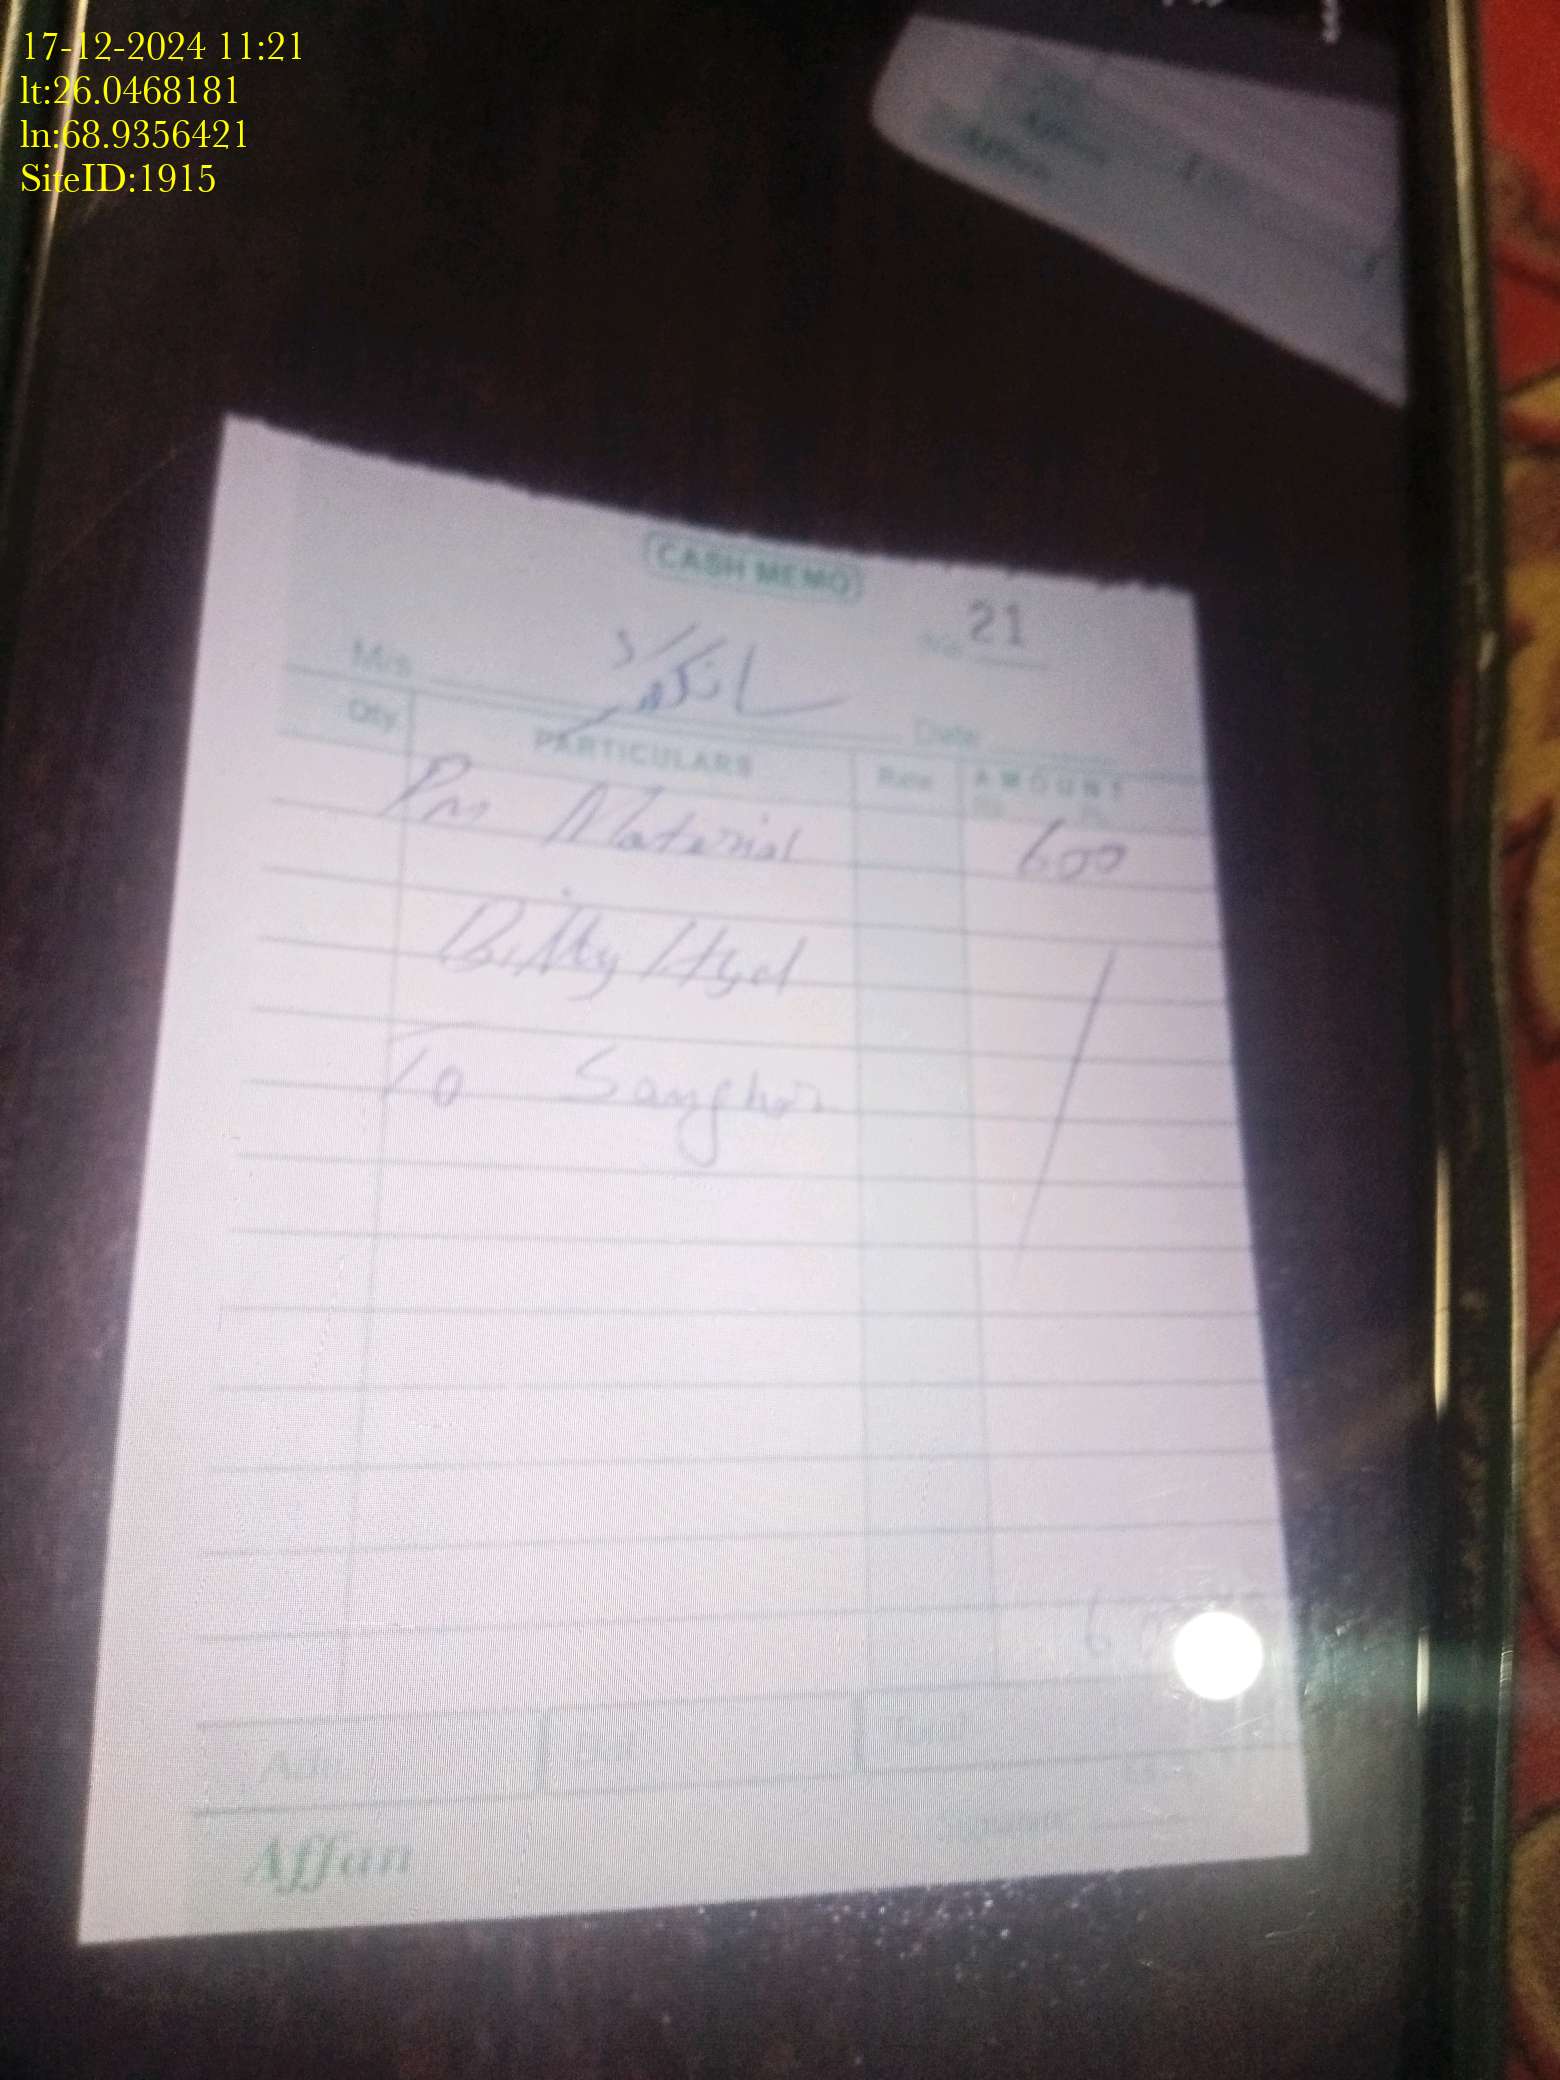 17-12-2024 11:21
lt:26.0468181
ln:68.9356421
SiteID:1915
CASH MEMO
No. 21
M/s. سانگھڑ
Date
Qty. PARTICULARS Rate AMOUNT
Pm Material 600
Bilty Hyd
To Sanghar
Adv.
Bal.
Total
Signature
Affan